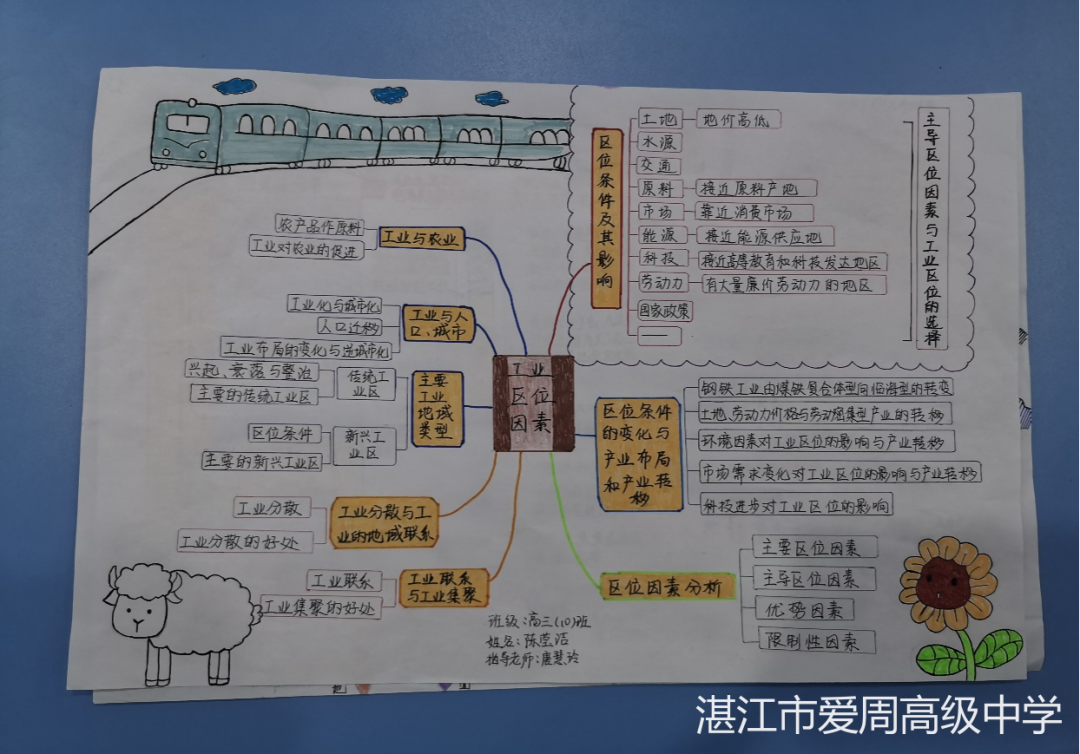 工业
区位
因素
区位条件及其影响
土地
地价高低
水源
交通
原料
接近原料产地
市场
靠近消费市场
能源
接近能源供应地
科技
接近高等教育和科技发达地区
劳动力
有大量廉价劳动力的地区
国家政策
主导区位因素与工业区位的选择
区位条件
的变化与
产业布局
和产业转
移
钢铁工业由煤铁复合体型向临海型的转变
土地、劳动力价格与劳动密集型产业的转移
环境因素对工业区位的影响与产业转移
市场需求变化对工业区位的影响与产业转移
科技进步对工业区位的影响
区位因素分析
主要区位因素
主导区位因素
优势因素
限制性因素
工业与农业
农产品作原料
工业对农业的促进
工业与人
口、城市
工业化与城市化
人口迁移
工业布局的变化与逆城市化
主要
工业
地域
类型
传统工
业区
兴起、衰落与整治
主要的传统工业区
新兴工
业区
区位条件
主要的新兴工业区
工业分散与工
业的地域联系
工业分散
工业分散的好处
工业联系
与工业集聚
工业联系
工业集聚的好处
班级:高三(10)班
姓名:陈莹洁
指导老师:唐慧玲
湛江市爱周高级中学